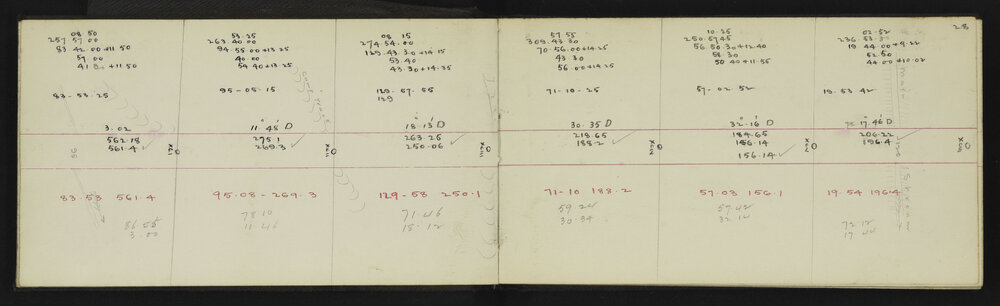 28
08 50
257 57 00
83 42.00 + 11 50
57 00
41 + 11 50
83 - 53.25
3.02
562.18
561.4
83.53 561.4
86.58
3.00
53.25
263 40 00
94.55 00 + 13 25
40.00
54 40 + 13.25
95 - 05.15
11° 45' D
275 1
269.3
95.08 - 269.3
78 10
11.46
08 15
274 54.00
129.43.30 + 14.15
53.40
43.30 + 14.35
129 - 57.55
129
18° 13' D
263.26
250.06
129 - 58 250.1
71.46
18.12
57.55
309.43 30
70 - 56.00 + 14.25
43 30
56.00 + 14.25
71 - 10 - 25
30.35 D
218.65
188.2
71 - 10 188.2
59 24
30.34
10.25
250.57 45
56.50.30 + 12.40
58 30
50 40 + 11.55
57 - 02.52
32° 16' D
184.65
156.14
156.14
57.03 156.1
57 42
32 14
02.52
236 53
19 44.00 + 9.22
52.50
44.00 + 10.02
19.53 42
17° 46' D
206.22
196.4
19.54 196.4
72 12
17 44